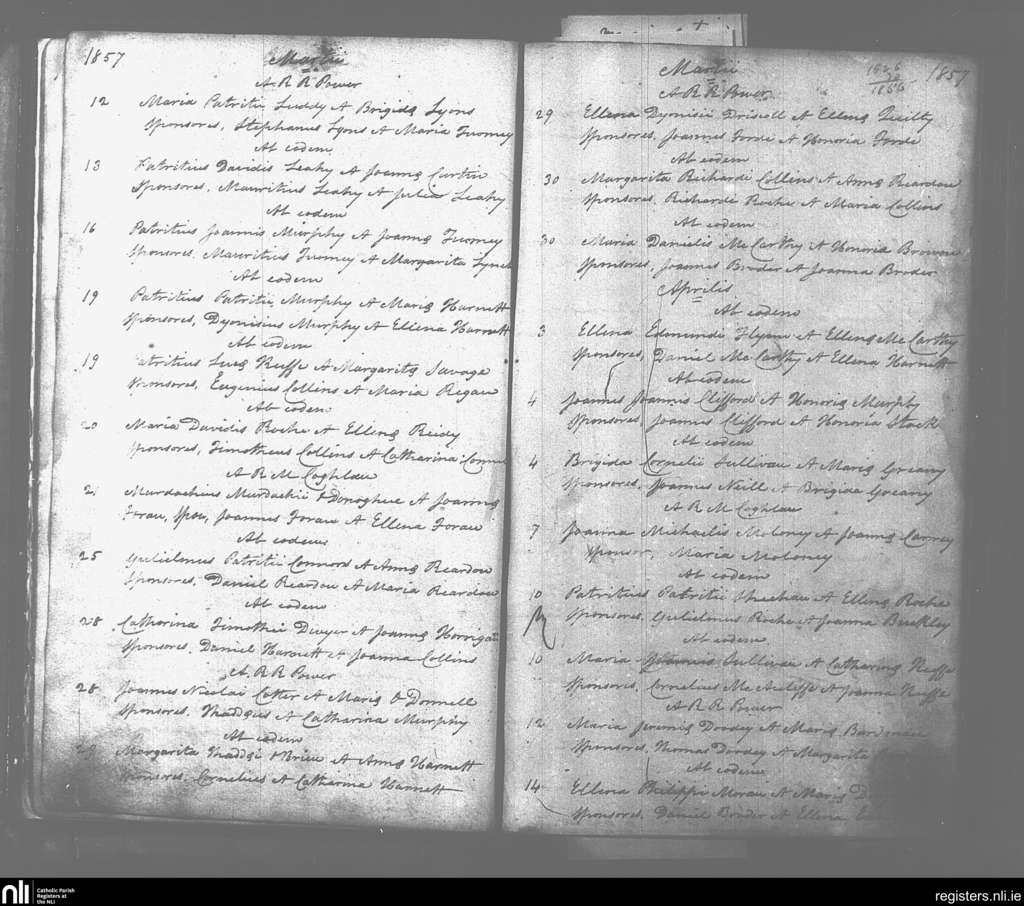 1857
Martii
A. R. R Power
12 Maria Patritii Luddy A Brigida Lyons
Sponsores, Stephanus Lyons A Maria Twomey
Ab eodem
13 Patritius Davidis Leahy A Joanna Curtin
Sponsores, Mauritius Leahy A Julia Leahy
Ab eodem
16 Patritius Joannis Murphy A Joanna Twomey
Sponsores, Mauritius Twomey A Margarita Lynch
Ab eodem
19 Patritius Patritii Murphy A Maria Harnett
Sponsores, Dyonisius Murphy A Ellena Harnett
Ab eodem
19 Patritius Keeffe A Margarita Savage
Sponsores, Eugenius Collins A Maria Regan
Ab eodem
20 Maria Davidis Roche A Ellena Reidy
Sponsores, Timotheus Collins A Catharina
A. R. M Coghlan
21 Murdachius Murdachii O Donoghue A Joanna
Foran, Spon, Joannes Foran A Ellena Foran
Ab eodem
25 Gulielmus Patritii Connors A Anna Reardon
Sponsores, Daniel Reardon A Maria Reardon
Ab eodem
28 Catharina Timothei Dwyer A Joanna Horrigan
Sponsores, Daniel Harnett A Joanna Collins
A. R. R Power
28 Joannes Nicolai Cotter A Maria O Donnell
Sponsores, Thaddeus A Catharina Murphy
Ab eodem
Margarita Thaddei O Brien A Anna Harnett
Sponsores, Cornelius A Catharina Harnett
1857
Martii
A. R. R Power
29 Ellena Dyonisii Driscoll A Ellena Quilty
Sponsores, Joannes Forde A Honoria Forde
Ab eodem
30 Margarita Richardi Collins A Anna Reardon
Sponsores, Richardi Roche A Maria Collins
Ab eodem
30 Maria Danielis McCarthy A Honoria Browne
Sponsores, Joannes Broder A Joanna Broder
Aprilis
Ab eodem
3 Ellena Edmundi Flynn A Ellena McCarthy
Sponsores, Daniel McCarthy A Ellena Harnett
Ab eodem
4 Joannes Joannis Clifford A Honoria Murphy
Sponsores, Joannes Clifford A Honoria Stack
Ab eodem
4 Brigida Cornelii Sullivan A Maria Greany
Sponsores, Joannes Neill A Brigida Greany
A R M Coghlan
7 Joanna Michaelis Moloney A Joanna Carney
Sponsor, Maria Moloney
Ab eodem
10 Patritius Patritii Sheehan A Ellena Roche
Sponsores, Gulielmus Roche A Joanna Buckley
Ab eodem
10 Maria Sullivan A Catharina Keeffe
Sponsores, Cornelius McAuliffe A Joanna Keeffe
A. R. R Power
12 Maria Dordey A Maria
Sponsores, Thomas Dordey A Margarita
Ab eodem
14 Ellena Philippi Moran A Maria
Sponsores, Daniel Broder A Ellena
nli
Catholic Parish
Registers at
the NLI
registers.nli.ie